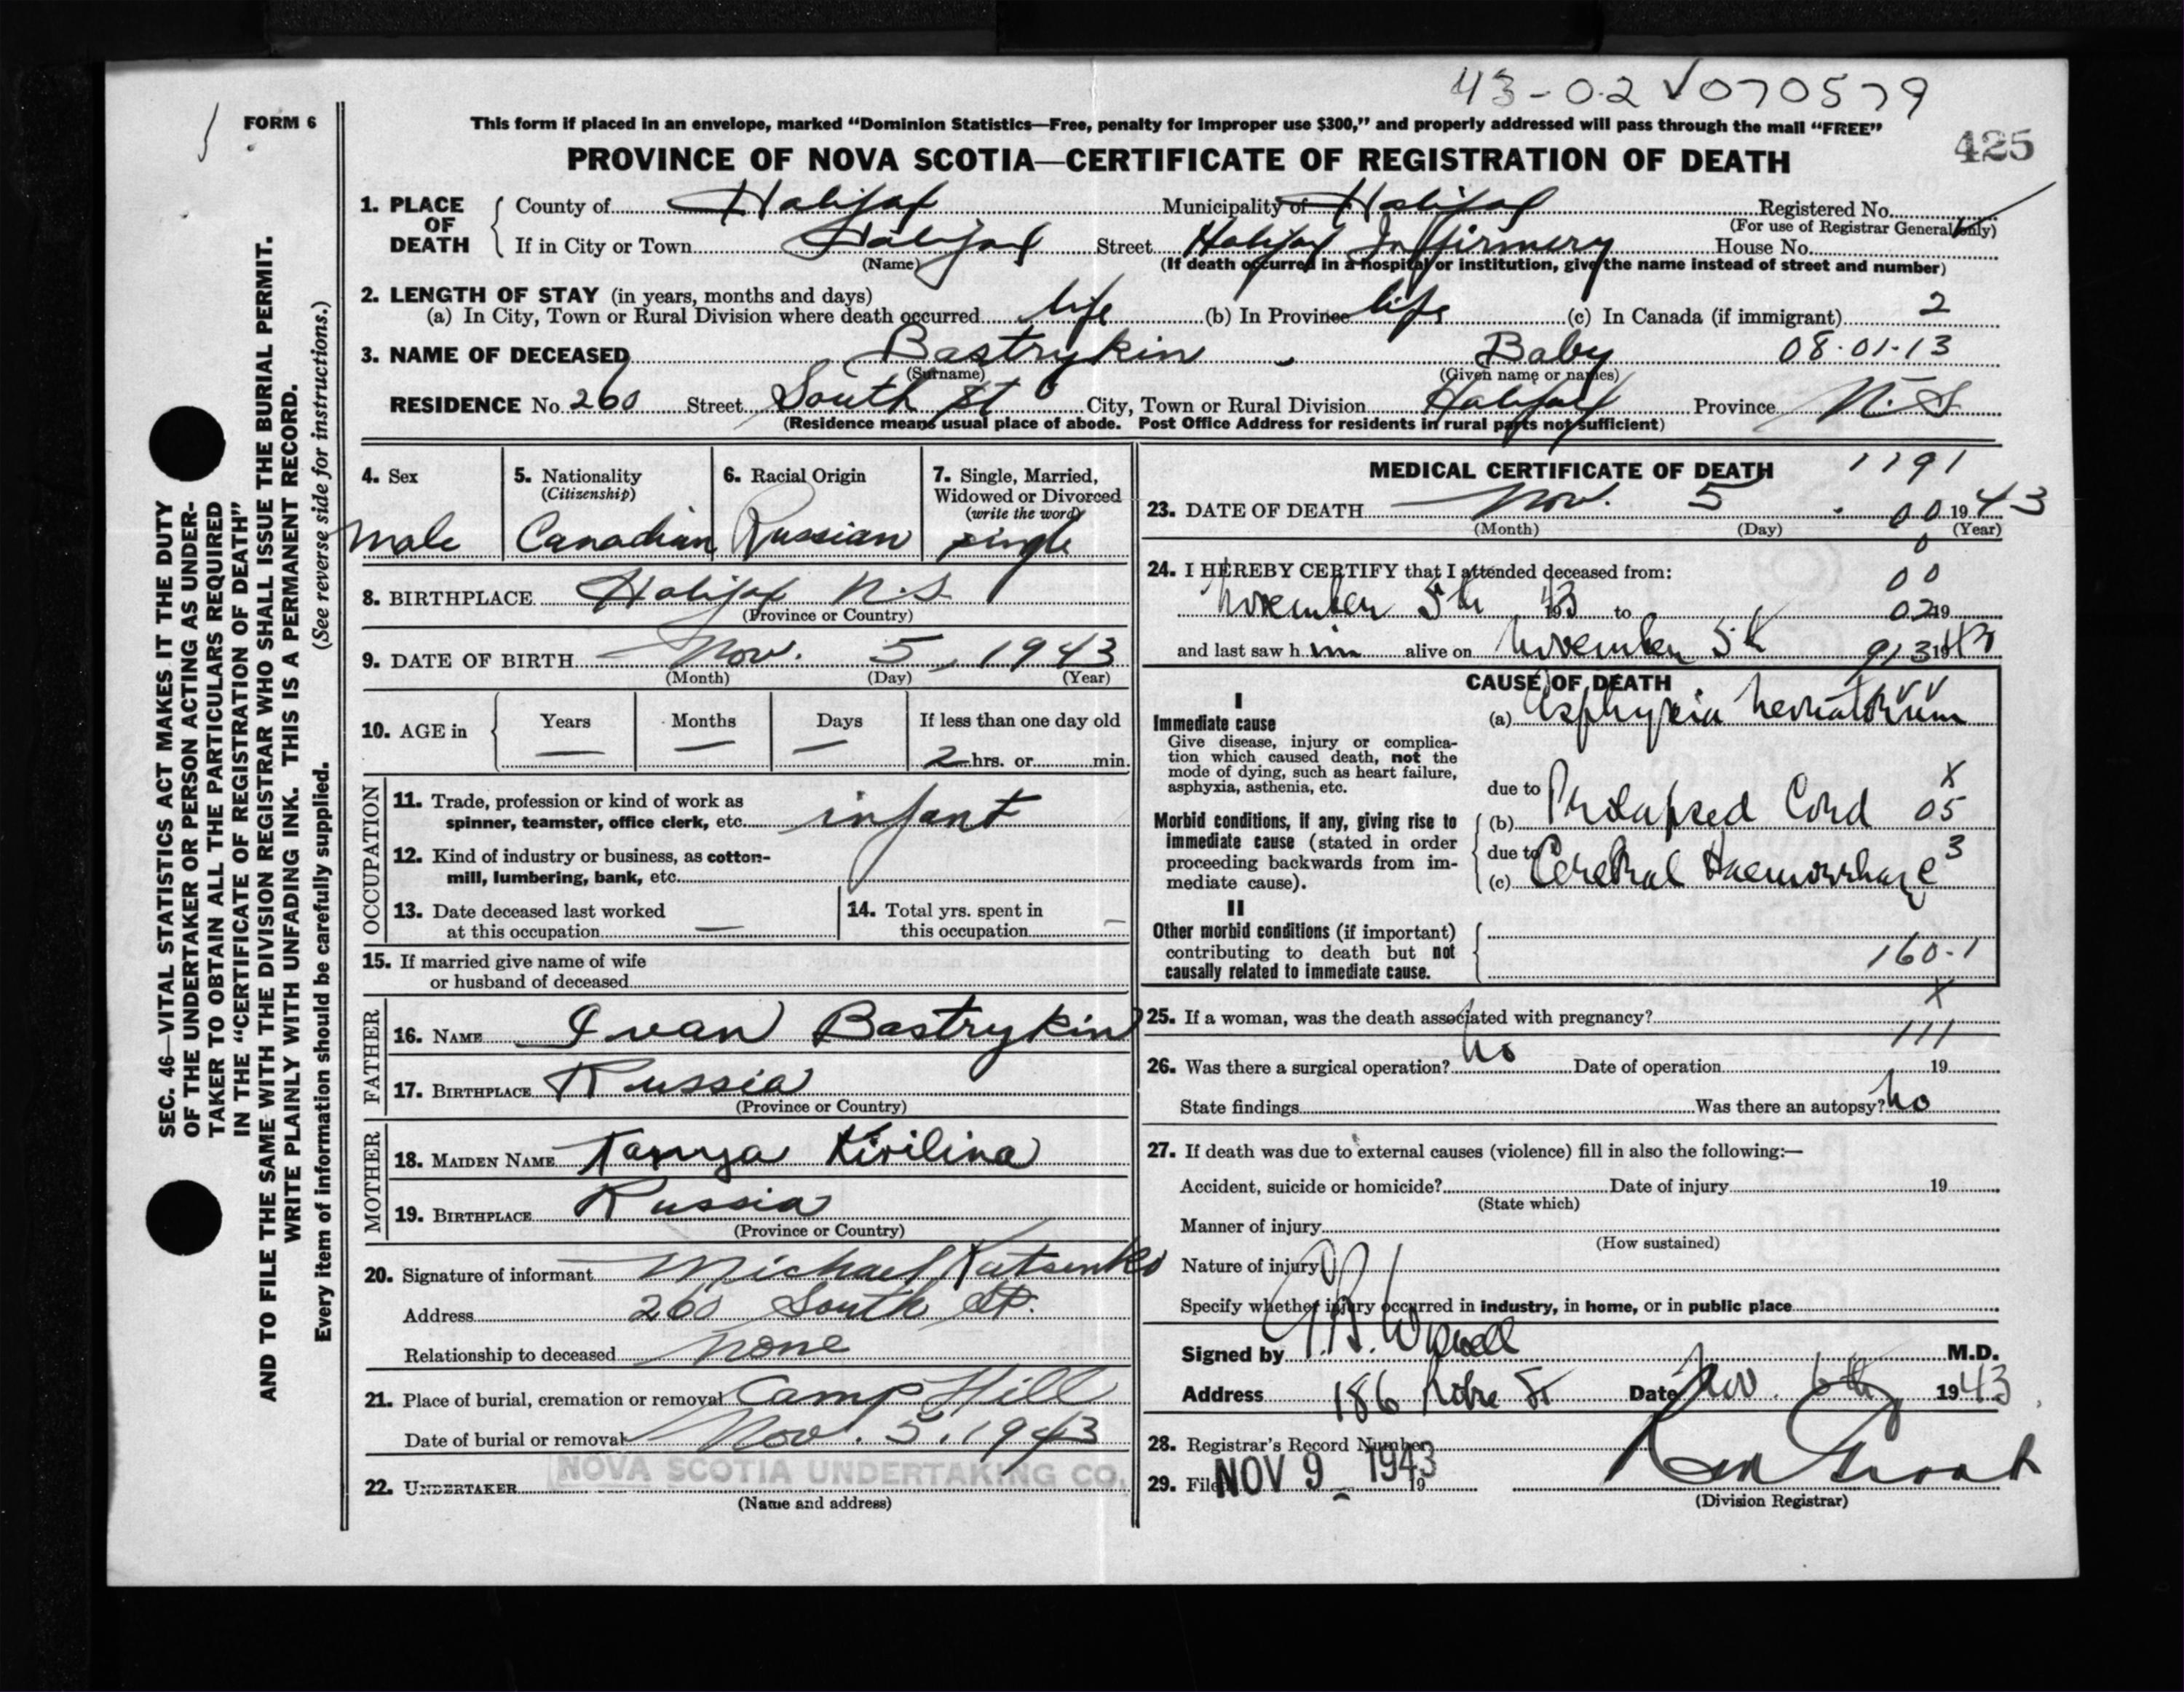 43-02 √ 070579
FORM 6
This form if placed in an envelope, marked “Dominion Statistics—Free, penalty for improper use $300,” and properly addressed will pass through the mail “FREE”
425
PROVINCE OF NOVA SCOTIA—CERTIFICATE OF REGISTRATION OF DEATH
SEC. 46—VITAL STATISTICS ACT MAKES IT THE DUTY
OF THE UNDERTAKER OR PERSON ACTING AS UNDER-
TAKER TO OBTAIN ALL THE PARTICULARS REQUIRED
IN THE “CERTIFICATE OF REGISTRATION OF DEATH”
AND TO FILE THE SAME WITH THE DIVISION REGISTRAR WHO SHALL ISSUE THE BURIAL PERMIT.
WRITE PLAINLY WITH UNFADING INK. THIS IS A PERMANENT RECORD.
Every item of information should be carefully supplied. (See reverse side for instructions.)
1. PLACE OF DEATH
County of Halifax Municipality of Halifax Registered No.
(For use of Registrar General only)
If in City or Town Halifax Street Halifax Infirmery House No.
(Name) (If death occurred in a hospital or institution, give the name instead of street and number)
2. LENGTH OF STAY (in years, months and days)
(a) In City, Town or Rural Division where death occurred life (b) In Province life (c) In Canada (if immigrant) 2
3. NAME OF DECEASED Bastrykin, Baby 08-01-13
(Surname) (Given name or names)
RESIDENCE No. 260 Street South St City, Town or Rural Division Halifax Province N.S
(Residence means usual place of abode. Post Office Address for residents in rural parts not sufficient)
4. Sex
male
5. Nationality
(Citizenship)
Canadian
6. Racial Origin
Russian
7. Single, Married,
Widowed or Divorced
(write the word)
single
8. BIRTHPLACE Halifax N.S.
(Province or Country)
9. DATE OF BIRTH Nov. 5, 1943
(Month) (Day) (Year)
10. AGE in
Years Months Days If less than one day old
— — — 2 hrs. or min.
OCCUPATION
11. Trade, profession or kind of work as
spinner, teamster, office clerk, etc. infant
12. Kind of industry or business, as cotton-
mill, lumbering, bank, etc.
13. Date deceased last worked
at this occupation —
14. Total yrs. spent in
this occupation —
15. If married give name of wife
or husband of deceased
FATHER
16. NAME Ivan Bastrykin
17. BIRTHPLACE Russia
(Province or Country)
MOTHER
18. MAIDEN NAME Tanya Kirilina
19. BIRTHPLACE Russia
(Province or Country)
20. Signature of informant Michael Katsenko
Address 260 South St.
Relationship to deceased none
21. Place of burial, cremation or removal Camp Hill
Date of burial or removal Nov. 5. 1943
22. UNDERTAKER NOVA SCOTIA UNDERTAKING CO.
(Name and address)
MEDICAL CERTIFICATE OF DEATH 1191
23. DATE OF DEATH Nov. 5 00 1943
(Month) (Day) (Year)
0
24. I HEREBY CERTIFY that I attended deceased from: 00
November 5th 1943 to 02 19
and last saw him alive on November 5th 913 1943
CAUSE OF DEATH
I
Immediate cause
Give disease, injury or complica-
tion which caused death, not the
mode of dying, such as heart failure,
asphyxia, asthenia, etc.
(a) Asphyxia Neonatorum
due to X
Morbid conditions, if any, giving rise to
immediate cause (stated in order
proceeding backwards from im-
mediate cause).
(b) Prolapsed Cord 05
due to 3
(c) Cerebral Haemorrhage
II
Other morbid conditions (if important)
contributing to death but not
causally related to immediate cause.
160-1
X
25. If a woman, was the death associated with pregnancy?
111
26. Was there a surgical operation? no Date of operation 19
State findings Was there an autopsy? no
27. If death was due to external causes (violence) fill in also the following:—
Accident, suicide or homicide? Date of injury 19
(State which)
Manner of injury
(How sustained)
Nature of injury
Specify whether injury occurred in industry, in home, or in public place
Signed by M.D.
Address 186 St Date Nov. 6th 1943
28. Registrar’s Record Number
29. Filed NOV 9 1943 19
(Division Registrar)